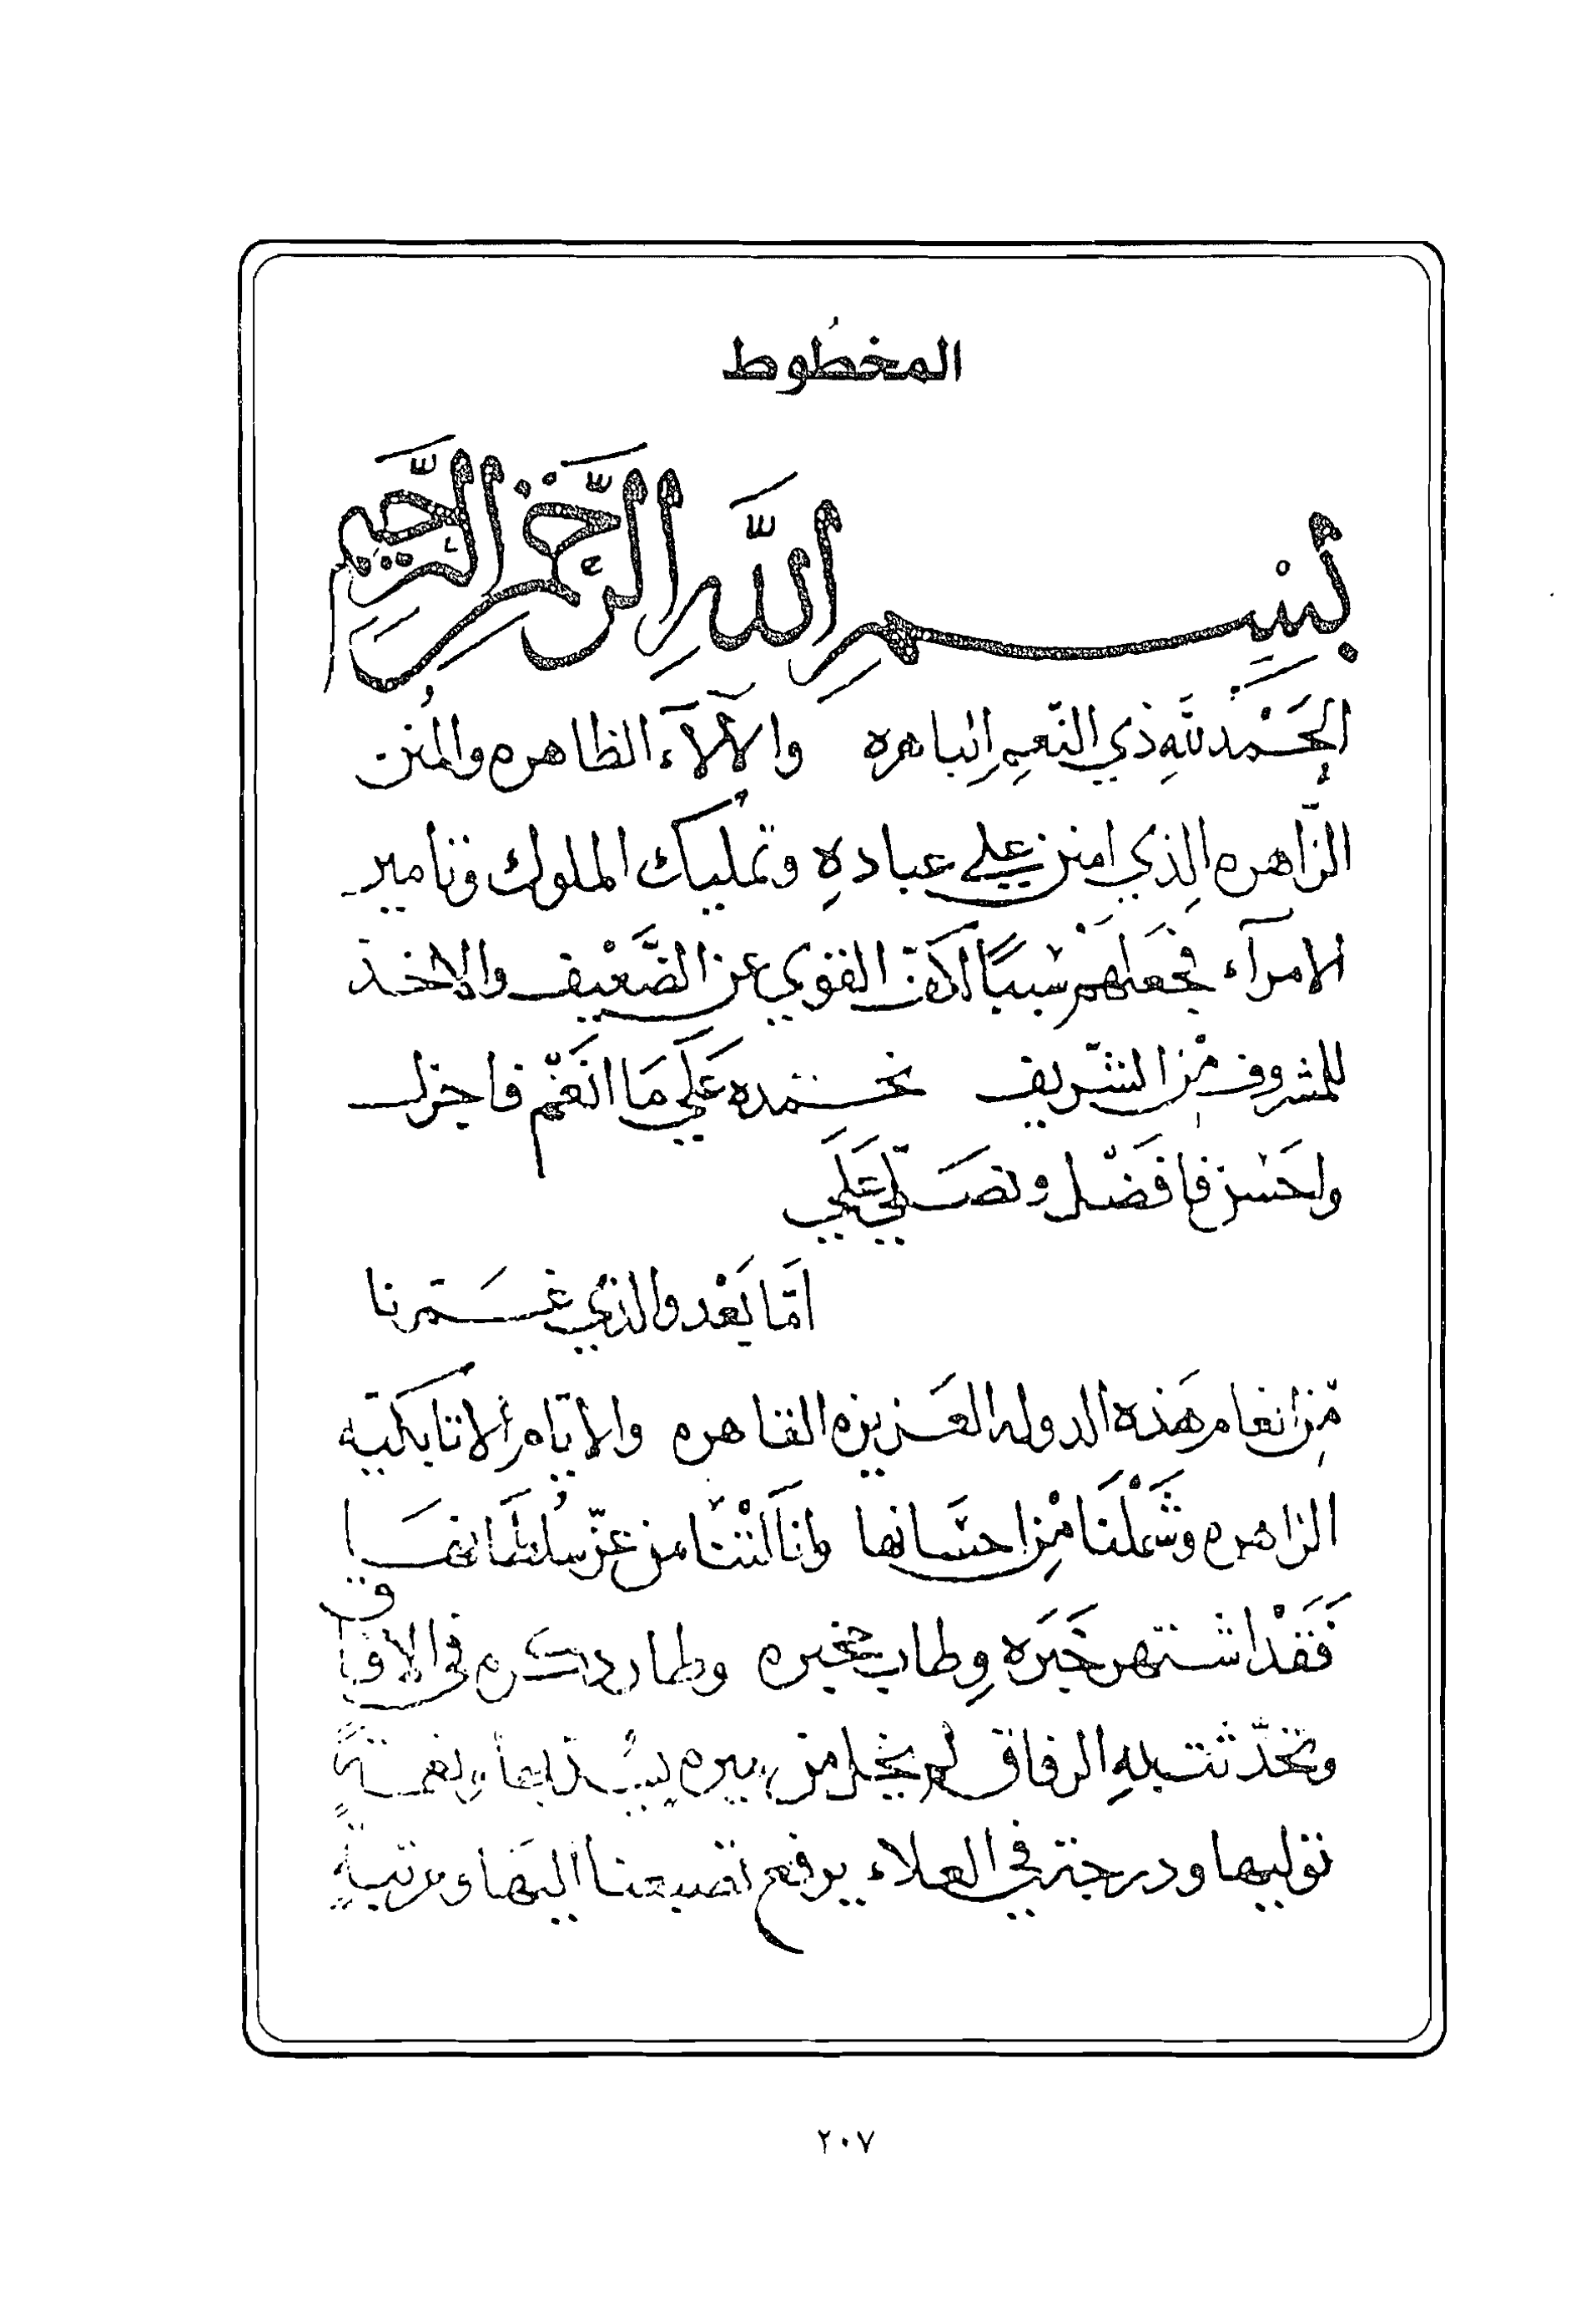 المخطُوط
بِسْمِ اللَّهِ الرَّحْمَنِ الرَّحِيمِ
الحَمْد للهِ ذي النّعمِ الباهره والآلآء الظاهره والمُنن
الزّاهره الذي امتن علي عبادهِ وتمليك الملوك وتامير
الامرآء فجعَلهَمْ سَببًا لاكفّ القوي عن الضَّعْيف والاخذ
للمشروف مْن الشّريف نحْمده عَلَي مَا انَعْمْ فاجزل
واحَسْن فافَضْل ونصَلّي عَلَي
امَّا بَعْد والذي غَمرنا
مّن انعام هَذه الدوله العَزيزه القاهره والايّام الاتابكيّه
الزاهره وشَمْلَنَا مْن احسَانها وانَالَتْنَا من عزّ سُلطَانهَا
فَقَدْ اشتهر خَبَره وطاب مخبره وطار ذكره في الافاق
وتحَدّثت بهِ الرفاق لم يخل من
توليها ودرجة في العلاء يرفع تصبعنا اليهَا ومرتبةٍ
٢٠٧